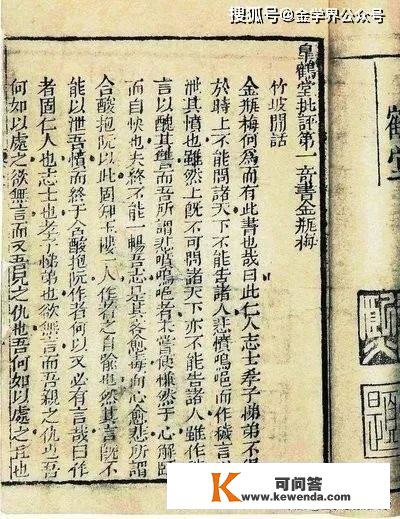 搜狐号@金学界公众号
皐鶴堂批評第一竒書金瓶梅
竹坡閒話
金瓶梅何為而有此書也哉曰此仁人志士孝子悌弟不得
於時上不能問諸天下不能告諸人悲憤嗚唈而作穢言以
泄其憤也雖然上既不可問諸天下亦不能告諸人雖作穢
言以醜其讐而吾所謂悲憤嗚唈者未嘗便慊然于心解頤
而自快也夫終不能一暢吾志是其言愈毒而心愈悲所謂
含酸抱阮以此固知玉樓一人作者之自喻也然其言既不
能以泄吾憤而終于含酸抱阮作者何以又必有言哉曰作
者固仁人也志士也孝子悌弟也欲無言而吾親之仇也吾
何如以處之欲無言而又吾兄之仇也吾何如以處之且也
鶴堂
K 可问答
www.kewenda.com